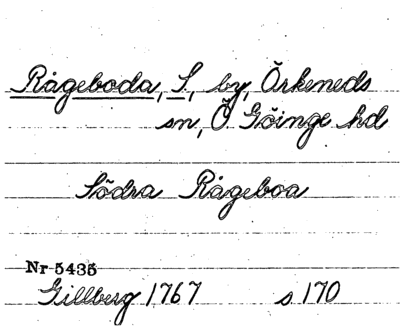 Rågeboda, S, by, Örkeneds
sn, Ö Göinge hd
Södra Rågeboa
Nr 5435
Gillberg 1767 s 170